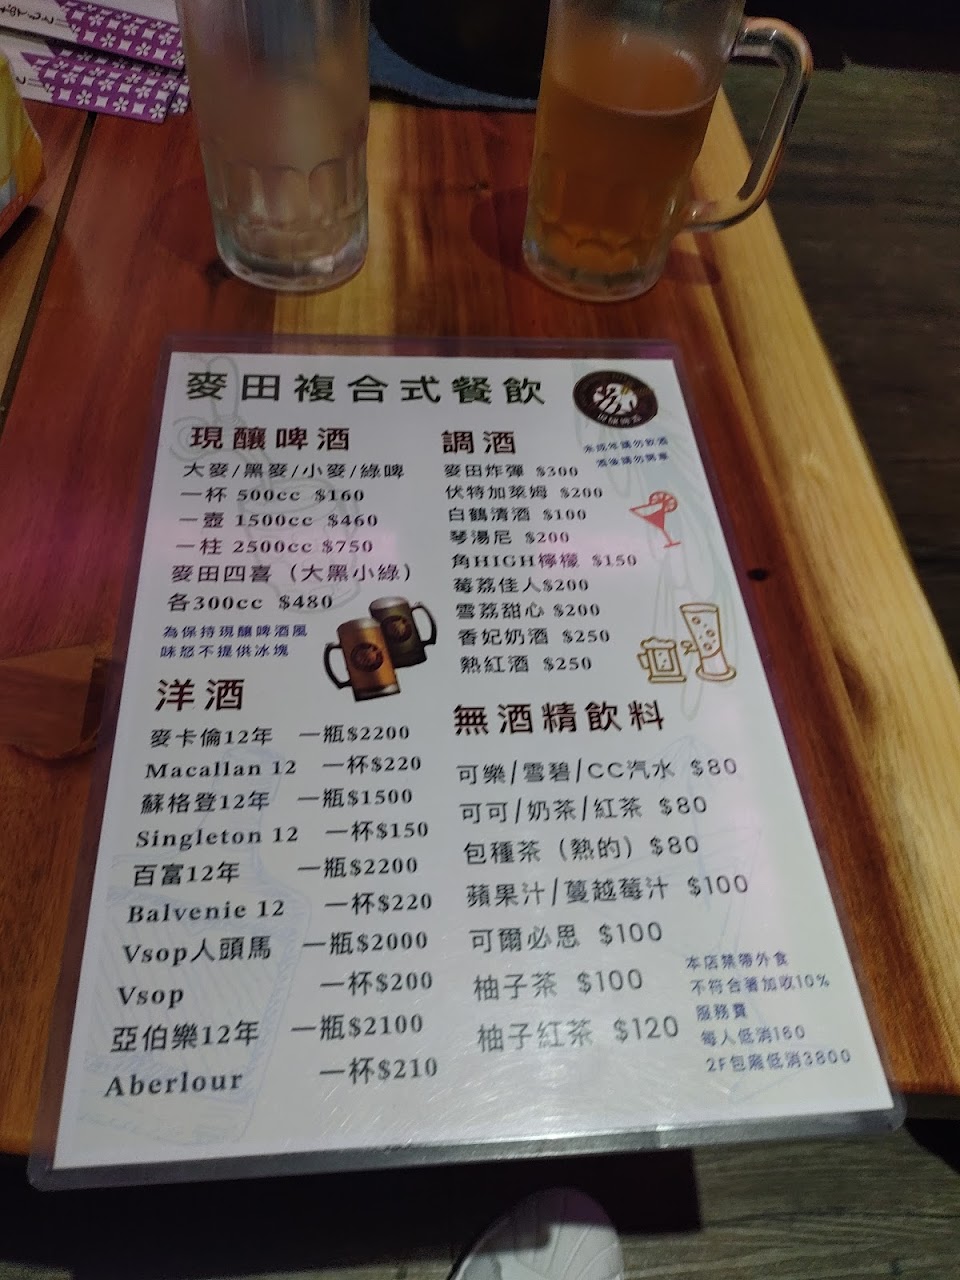 麥田複合式餐飲
現釀啤酒
大麥/黑麥/小麥/綠啤
一杯 500cc $160
一壺 1500cc $460
一柱 2500cc $750
麥田四喜（大黑小綠）
各300cc $480
為保持現釀啤酒風
味恕不提供冰塊
洋酒
麥卡倫12年 一瓶$2200
Macallan 12 一杯$220
蘇格登12年 一瓶$1500
Singleton 12 一杯$150
百富12年 一瓶$2200
Balvenie 12 一杯$220
Vsop人頭馬 一瓶$2000
Vsop 一杯$200
亞伯樂12年 一瓶$2100
Aberlour 一杯$210
未成年請勿飲酒
酒後請勿開車
調酒
麥田炸彈 $300
伏特加萊姆 $200
白鶴清酒 $100
琴湯尼 $200
角HIGH檸檬 $150
莓荔佳人$200
雪荔甜心 $200
香妃奶酒 $250
熱紅酒 $250
無酒精飲料
可樂/雪碧/CC汽水 $80
可可/奶茶/紅茶 $80
包種茶（熱的）$80
蘋果汁/蔓越莓汁 $100
可爾必思 $100
柚子茶 $100
柚子紅茶 $120
本店禁帶外食
不符合著加收10%
服務費
每人低消160
2F包廂低消3800